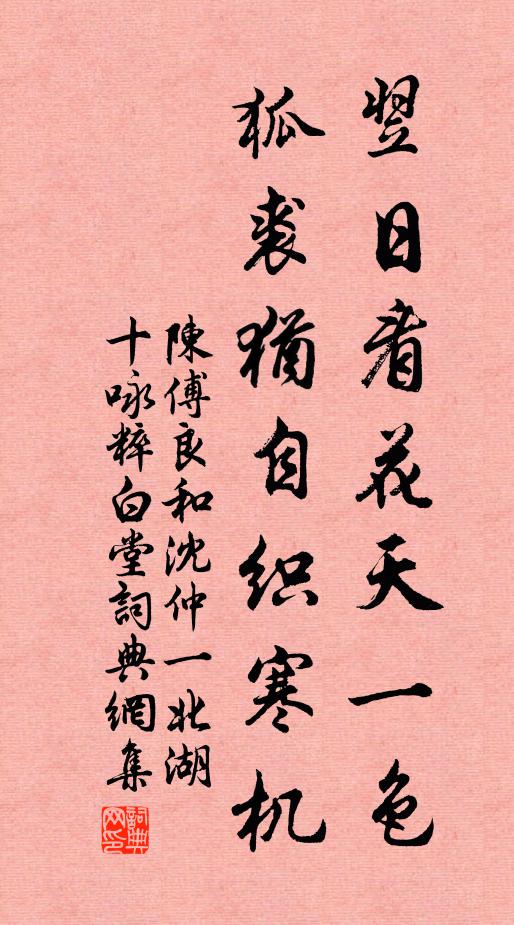 翌日看花天一色
狐裘犹自织寒机
陳傅良和沈仲一北湖
十咏粹白堂詞典網集
詞典网印